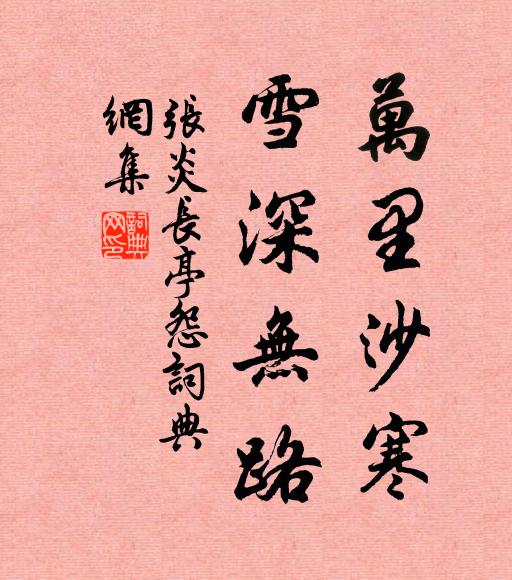 萬里沙寒
雪深無路
張炎長亭怨詞典
網集
詞典
网印